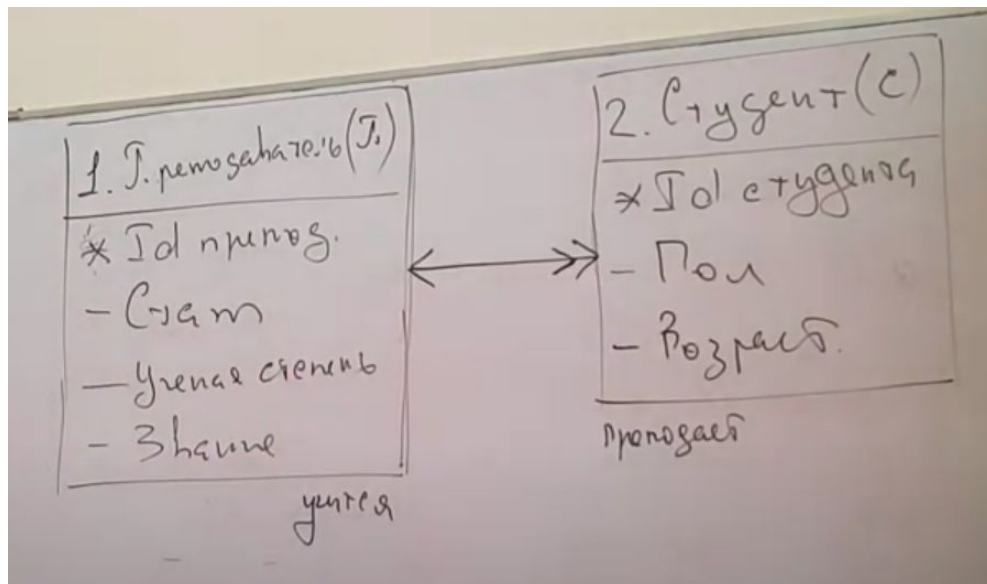 1. Преподаватель (П)
* Id препод.
- Стаж
- Ученая степень
- Звание
учится
2. Студент (С)
* Id студента
- Пол
- Возраст.
преподает